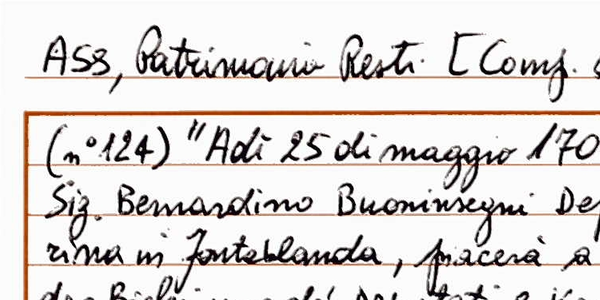 ASS, Patrimonio Resti. [Comp.
(n° 124) "Adì 25 di maggio 170
Sig. Bernardino Buoninsegni De
rina in Fonteblanda, piacerà a